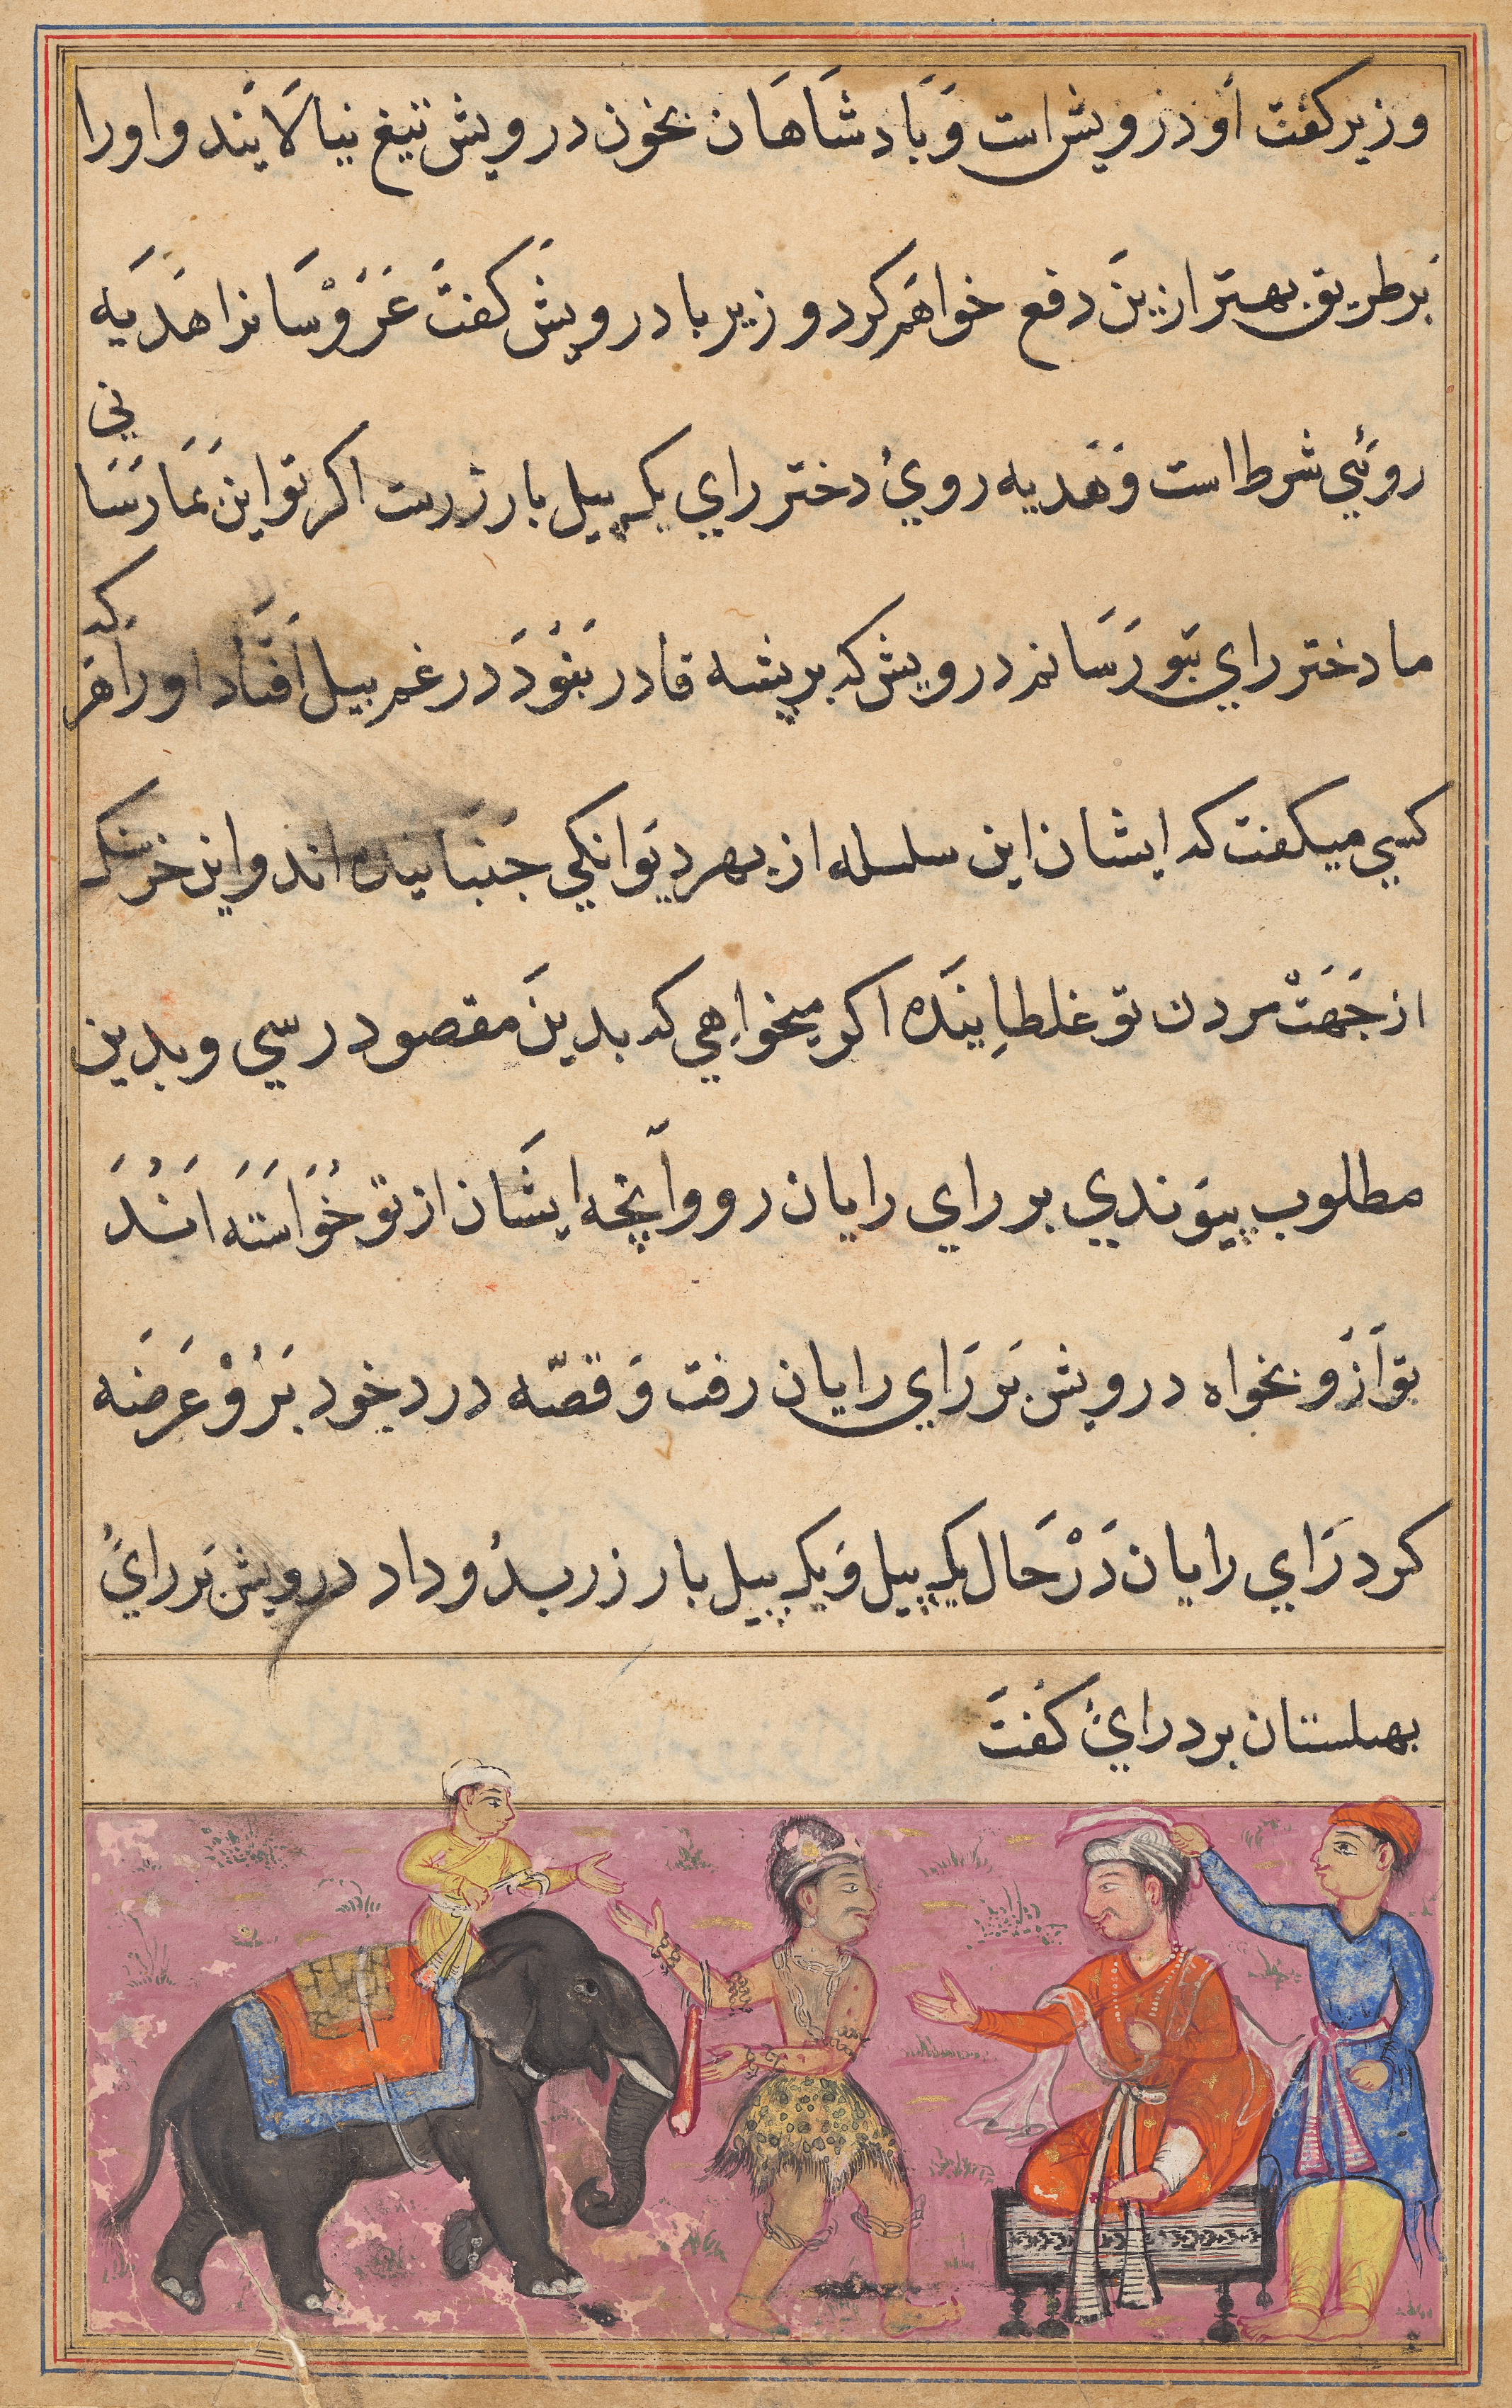 وزير كفت اَو درويش است وَ بَادشَاهَان بخون درويش تيغ نيالَايَند و اورا
بَرطريق بهتر ازينَ دفع خواهَم كرد وزير با درويش كفتَ عَرَوْسَانرا هَديَه
روئي شرط است وَ هَديه رويُ دختر راي يك پيل بار زرست اكر تو اين بمَارسَا ني
ما دختر راي بتَو رَسَانم درويش كه بر پشه قادر نبَوُدَ در غم پيل اَفتَاد او رَا هَر كه
كسي ميكفت كه ايشان اين سلسله از بهر ديوَانكي جنبَانيده اند و اين خر سنك
از جَهَتْ مردن تو غلطاِنيَده اكر ميخواِهي كه بدينَ مقصود رسي و بدين
مطلوب پيوَندي بر راي رايان رو و آنچه ايشَان از تو خُوَاستَه اَنُدَ
تو اَزَو بخواه درويش بَر رَاي رايان رفت وَ قصّه درد خود بَرُوْ عَرضَه
كرد رَاي رايان دَرْحَال يك پيل وَ يك پيل بار زر بدُو داد درويش بَر رايُ
بهلستان برد رايُ كَفتَ